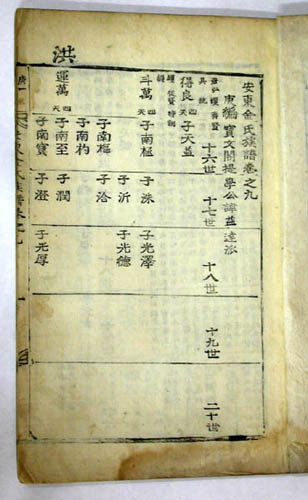 洪
安東金氏族譜卷之九
編寶文閣提學公諱益達派
十六世 十七世 十八世 十九世 二十世
得良 子天益
斗萬 天四 子南極 子洙 子光澤
子沂 子光德
子南樞 子洽
子南杓
子南至 子潤
運萬 天四 子南寶 子澄 子光厚